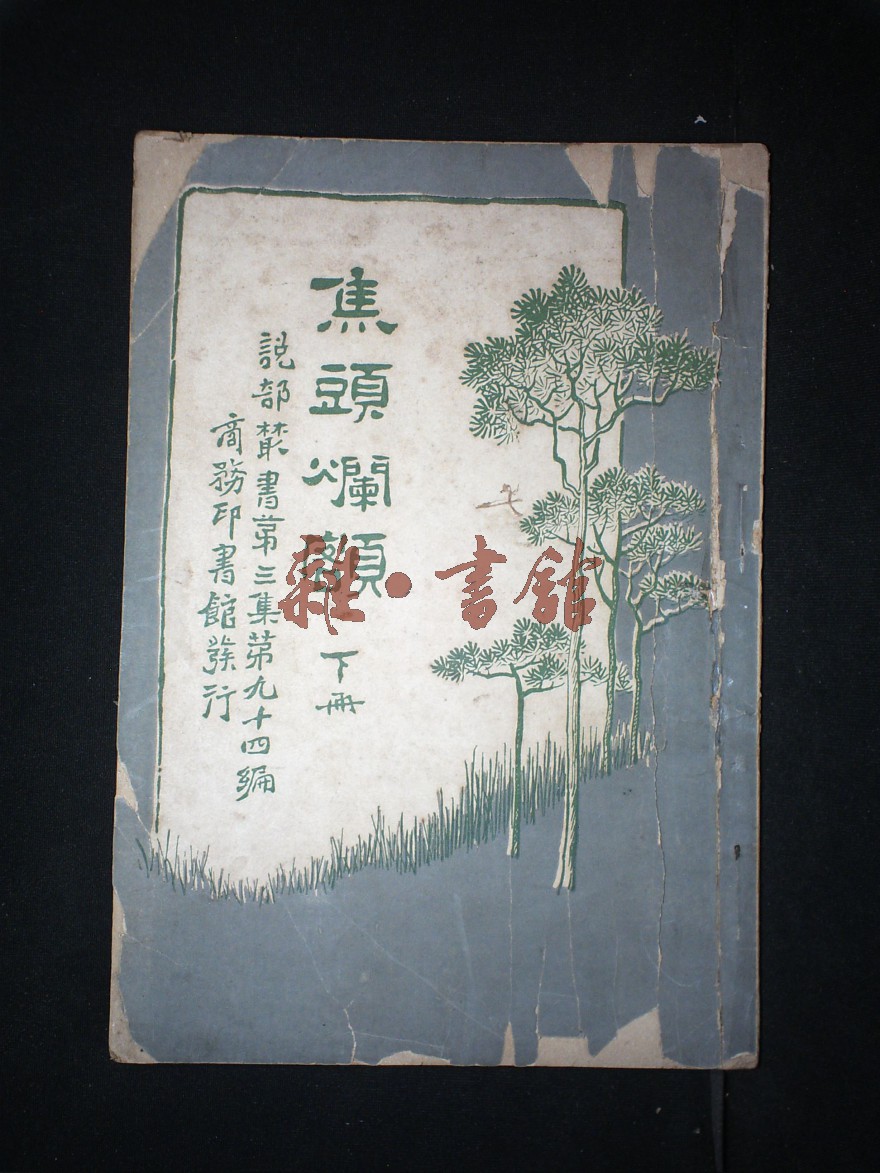 焦頭爛額 下冊
說部叢書第三集第九十四編
商務印書館發行
雜·書館